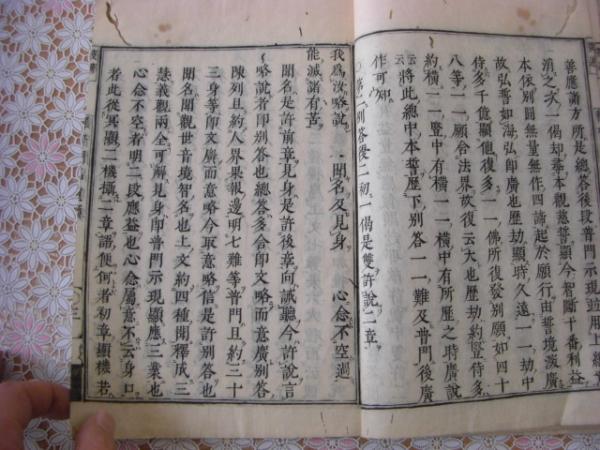 善應諸方所是總答後段普門示現
消之次一偈却
本依別圓無量無作四諦起於願行由
故弘誓如海弘即廣也歷劫顯時久遠一一劫中
侍多千億顯他復多一一佛所復發別願如四十
八等一一願合法界故復云大也歷劫約豎侍多
約橫一一豎中有橫一一橫中有所歷之時廣說
云將此總中本誓歷下別答一一難及普門後廣
作可知
○第二別答後二初一偈是雙許說二章
我爲汝略說 聞名及見身 心念不空過
能滅諸有苦
聞名是許前章見身是許後章向誡聽今許說言
略說者即別答也總答多含即文略而意廣別答
陳列且約人界果報邊明七難等普門且約三十
三身等即文廣而意略今取意略信是許別答也
聞名聞觀世音境智名也上文約四種開釋成三
慧義觀兩全可解見身即普門示現顯應三業也
心念不空者明二段應益也心念屬意不云身口
者此從冥顯二機攝二章諸便何者初章顯機若